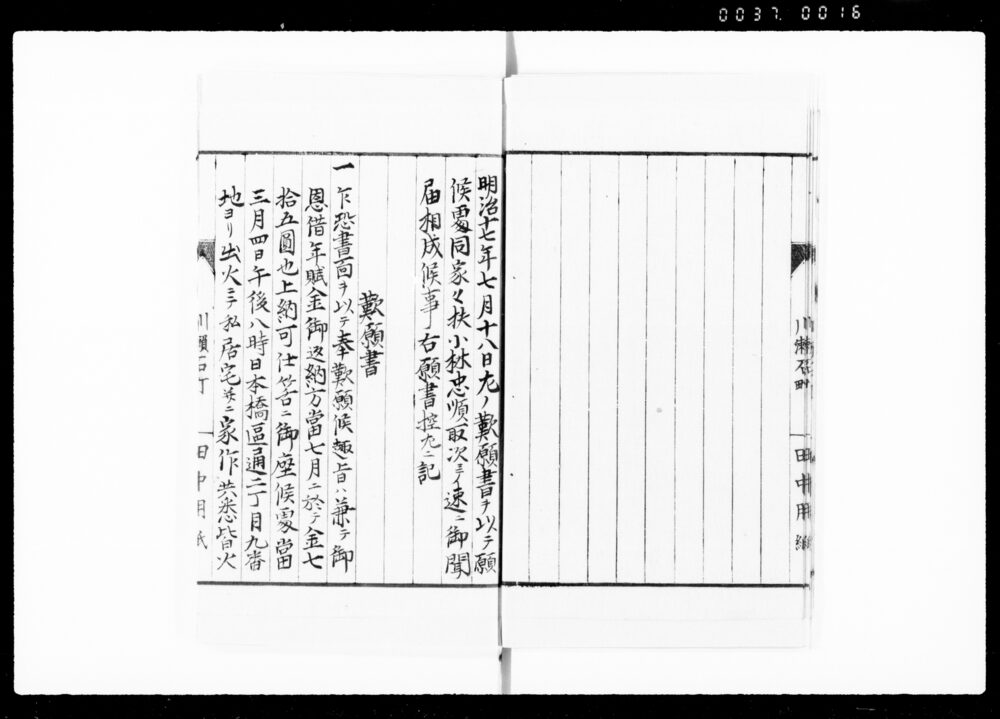 0037 0016
川瀬石町 田中用紙
明治十七年七月十八日左ノ歎願書ヲ以テ願
候處同家々扶小林忠順取次ニテ速ニ御聞
届相成候事右願書控左ニ記
歎願書
一乍恐書面ヲ以テ奉歎願候趣旨ハ兼テ御
恩借年賦金御返納方當七月ニ於テ金七
拾五圓也上納可仕筈ニ御座候處當
三月四日午後八時日本橋區通二丁目九番
地ヨリ出火ニテ私居宅并ニ家作共悉皆火
川瀬石町 田中用紙